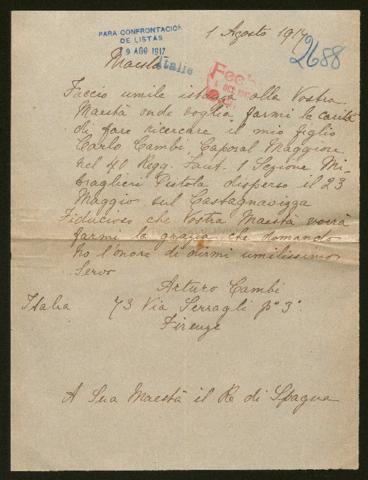 PARA CONFRONTACIÓN
DE LISTAS
9 AGO 1917
Italie
1 Agosto 1917
2688
Maestà
Faccio umile istanza alla Vostra
Maestà onde voglia farmi la carità
di fare ricercare il mio figlio
Carlo Cambi, Caporal Maggiore
nel 41 Regg. Fant. 1 Sezione Mi-
traglieri Pistola disperso il 23
Maggio sul Castagnavizza
Fiducioso che Vostra Maestà vorrà
farmi la grazia che domando
ho l'onore di dirmi umilissimo
Servo
Arturo Cambi
Italia 73 Via Serragli p° 3°
Firenze
A Sua Maestà il Re di Spagna